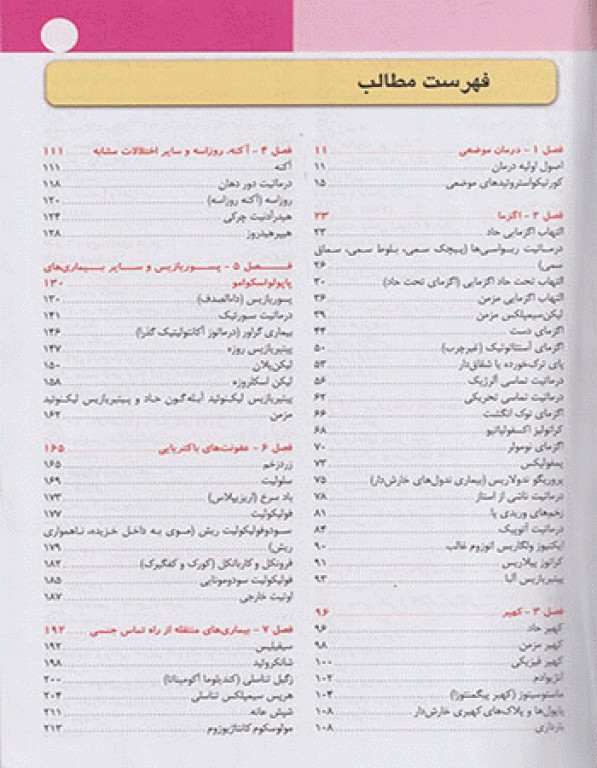 فهرست مطالب
فصل ۱ - درمان موضعی ۱۱
اصول اولیه درمان ۱۱
کورتیکواستروئیدهای موضعی ۱۵
فصل ۲ - اگزما ۲۳
التهاب اگزمایی حاد ۲۳
درماتیت ریواسی‌ها (پیچک سمی، بلوط سمی، سماق
سمی) ۲۶
التهاب تحت حاد اگزمایی (اگزمای تحت حاد) ۳۰
التهاب اگزمایی مزمن ۳۶
لیکن‌سیمپلکس مزمن ۳۹
اگزمای دست ۴۴
اگزمای آستئاتوتیک (غیرچرب) ۵۰
پای ترک‌خورده یا شقاق‌دار ۵۳
درماتیت تماسی آلرژیک ۵۶
درماتیت تماسی تحریکی ۶۲
اگزمای نوک انگشت ۶۶
کراتولیز اکسفولیاتیو ۶۸
اگزمای نومولر ۷۰
پمفولیکس ۷۳
پروریگو ندولاریس (بیماری ندول‌های خارش‌دار) ۷۵
درماتیت ناشی از استاز ۷۸
زخم‌های وریدی پا ۸۱
درماتیت آتوپیک ۸۴
ایکتیوز ولگاریس اتوزوم غالب ۹۰
کراتوز پیلاریس ۹۱
پیتیریازیس آلبا ۹۳
فصل ۳ - کهیر ۹۶
کهیر حاد ۹۶
کهیر مزمن ۹۸
کهیر فیزیکی ۱۰۰
آنژیوادم ۱۰۲
ماستوسیتوز (کهیر پیگمنتوزا) ۱۰۴
پاپول‌ها و پلاک‌های کهیری خارش‌دار
بارداری ۱۰۸
فصل ۴ - آکنه، روزاسه و سایر اختلالات مشابه ۱۱۱
آکنه ۱۱۱
درماتیت دور دهان ۱۱۸
روزاسه (آکنه روزاسه) ۱۲۰
هیدرآدنیت چرکی ۱۲۴
هیپرهیدروز ۱۲۸
فصل ۵ - پسوریازیس و سایر بیماری‌های
پاپولواسکوامو ۱۳۰
پسوریازیس (داءالصدف) ۱۳۰
درماتیت سبورئیک ۱۴۱
بیماری گراور (درماتوز آکانتولیتیک گذرا) ۱۴۶
پیتیریازیس روزه ۱۴۷
لیکن‌پلان ۱۵۰
لیکن اسکلروزه ۱۵۸
پیتیریازیس لیکنوئید آبله‌گون حاد و پیتیریازیس لیکنوئید
مزمن ۱۶۲
فصل ۶ - عفونت‌های باکتریایی ۱۶۵
زردزخم ۱۶۵
سلولیت ۱۶۹
باد سرخ (اریزیپلاس) ۱۷۳
فولیکولیت ۱۷۷
سودوفولیکولیت ریش (موی به داخل خزیده، ناهمواری
ریش) ۱۷۹
فرونکل و کاربانکل (کورک و کفگیرک) ۱۸۲
فولیکولیت سودومونایی ۱۸۵
اوتیت خارجی ۱۸۷
فصل ۷ - بیماری‌های منتقله از راه تماس جنسی ۱۹۲
سیفیلیس ۱۹۲
شانکروئید ۱۹۸
زگیل تناسلی (کندیلوما آکومیناتا) ۲۰۰
هرپس سیمپلکس تناسلی ۲۰۴
شپش عانه ۲۱۱
مولوسکوم کانتاژیوزوم ۲۱۳